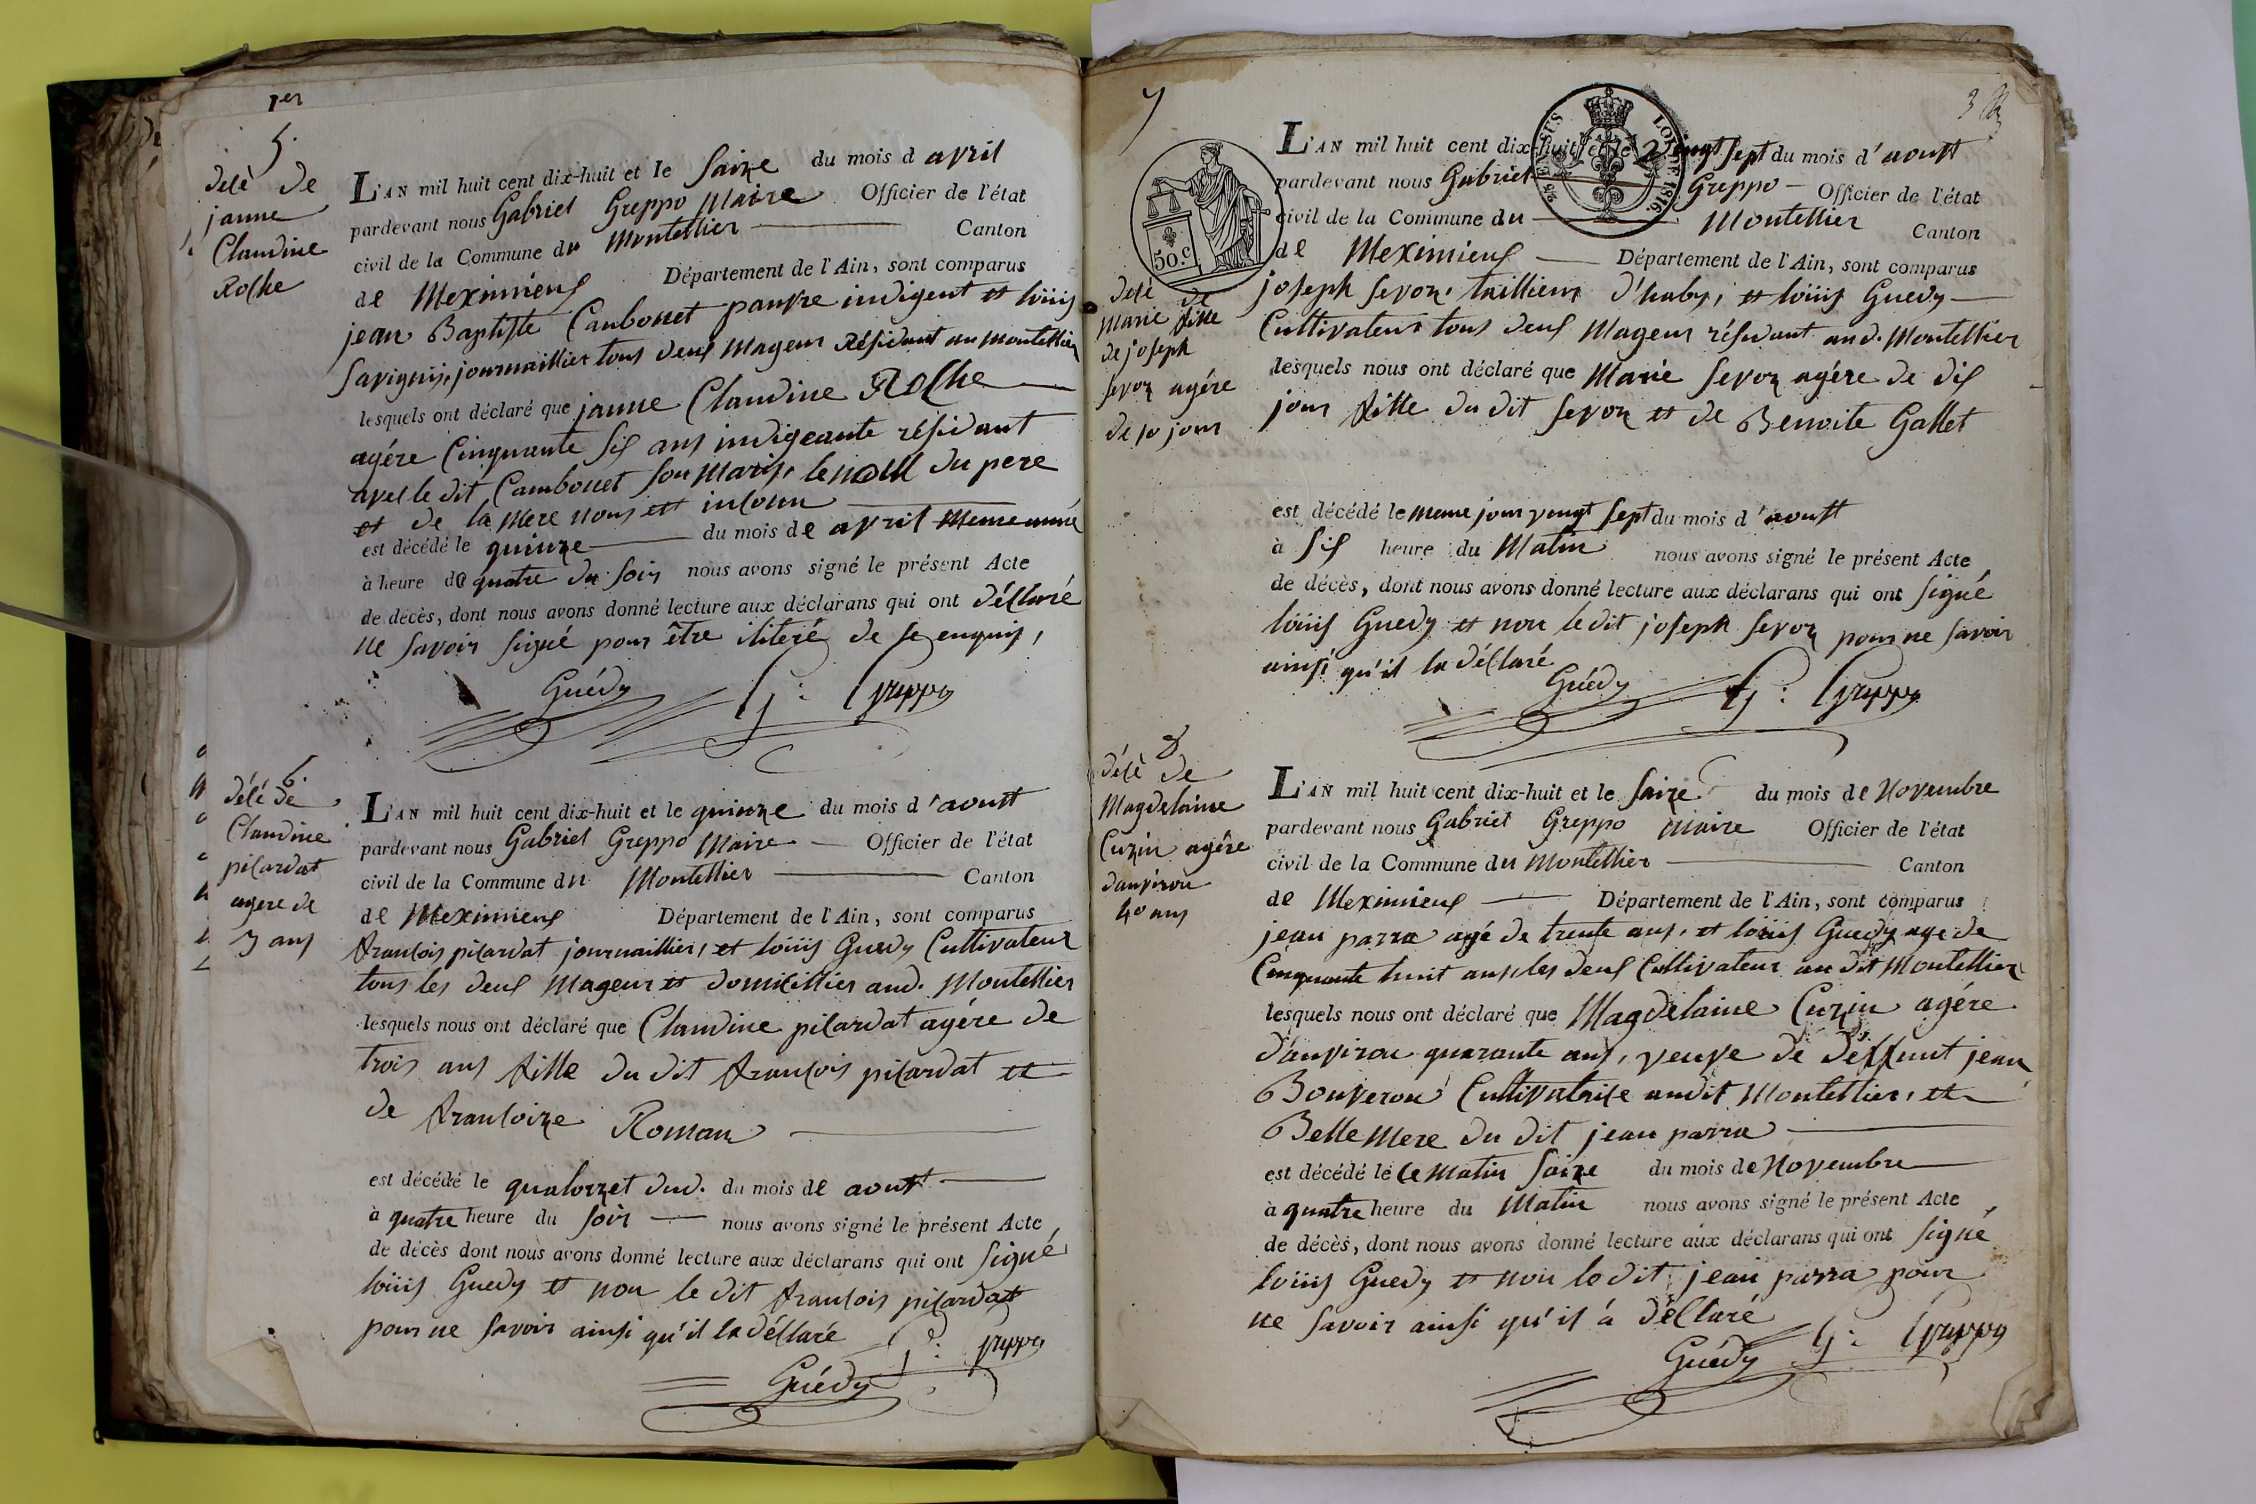 1er
5.
décè de
janne
Claudine
Roche
L'AN mil huit cent dix-huit et le saize du mois d avril
pardevant nous Gabriel Greppo Maire Officier de l'état
civil de la Commune du Montellier Canton
de Meximieux Département de l'Ain, sont comparus
jean Baptiste Cambouet pauvre indigent et loüis
savignij, journaillier tous deux Mageur Résidant au Montellier
lesquels ont déclaré que janne Claudine Roche
agére Cinquante six ans indigeante résidant
avec le dit Cambouet son Maris, le nom du pere
et de la Mere nous est incoun
est décédé le quinze du mois de avril Meme année
à heure de quatre du soir nous avons signé le présent Acte
de décès, dont nous avons donné lecture aux déclarans qui ont déclaré
ne savoir signé pour être iliteré de ce enquis,
Guédy G: Greppo
6.
décé de
Claudine
picardat
agere de
3 ans
L'AN mil huit cent dix-huit et le quinze du mois d'aoust
pardevant nous Gabriel Greppo Maire Officier de l'état
civil de la Commune du Montellier Canton
de Meximieux Département de l'Ain, sont comparus
francois picardat journaillier, et loüis Guedy Cultivateur
tous les deux Mageur et domicillier aud. Montellier
lesquels nous ont déclaré que Claudine picardat agére de
trois ans fille du dit francois picardat et
de francoize Roman
est décédé le quatorzet dud. du mois de aoust
à quatre heure du soir nous avons signé le présent Acte
de décès dont nous avons donné lecture aux déclarans qui ont signé
loüis Guedy et non le dit francois picardat
pour ne savoir ainsi qu'il la déclaré
G: Greppo
Guédy
7
3
50.C
2/5 EN SUS
LOI DE 1816.
décè de
Marie fille
de joseph
sevoz agére
de 10 jour
L'AN mil huit cent dix-huit et le vingt sept du mois d'aoust
pardevant nous Gabriel Greppo Officier de l'état
civil de la Commune du Montellier Canton
de Meximieux Département de l'Ain, sont comparus
joseph sevoz, taillieur d'haby, et loüis Guedy
Cultivateur tous deux Mageur résidant aud. Montellier
lesquels nous ont déclaré que Marie sevoz agére de dix
jour fille du dit sevoz et de Benoite Gallet
est décédé le meme jour vengt sept du mois d'aoust
à six heure du Matin nous avons signé le présent Acte
de décès, dont nous avons donné lecture aux déclarans qui ont signé
loüis Guedy et non le dit joseph sevoz pour ne savoir
ainsi qu'il la déclaré
Guédy G: Greppo
8
décè de
Magdelaine
Curzin agêre
d'anviron
40 ans
L'AN mil huit cent dix-huit et le saize du mois de Novembre
pardevant nous Gabriel Greppo Maire Officier de l'état
civil de la Commune du Montellier Canton
de Meximieux Département de l'Ain, sont comparus
jean parra agé de trente ans, et loüis Guedy age de
Cinquante huit ans, les deux Cultivateur au dit Montellier
lesquels nous ont déclaré que Magdelaine Curzin agére
d'anviron quarante ans, veuve de deffunt jean
Bouveron Cultivatrice audit Montellier, et
Belle Mere du dit jean parra
est décédé le Ce Matin saize du mois de Novembre
à quatre heure du Matin nous avons signé le présent Acte
de décès, dont nous avons donné lecture aux déclarans qui ont signé
loüis Guedy et non le dit jean parra pour
ne savoir ainsi qu'il à déclaré
Guédy G: Greppo